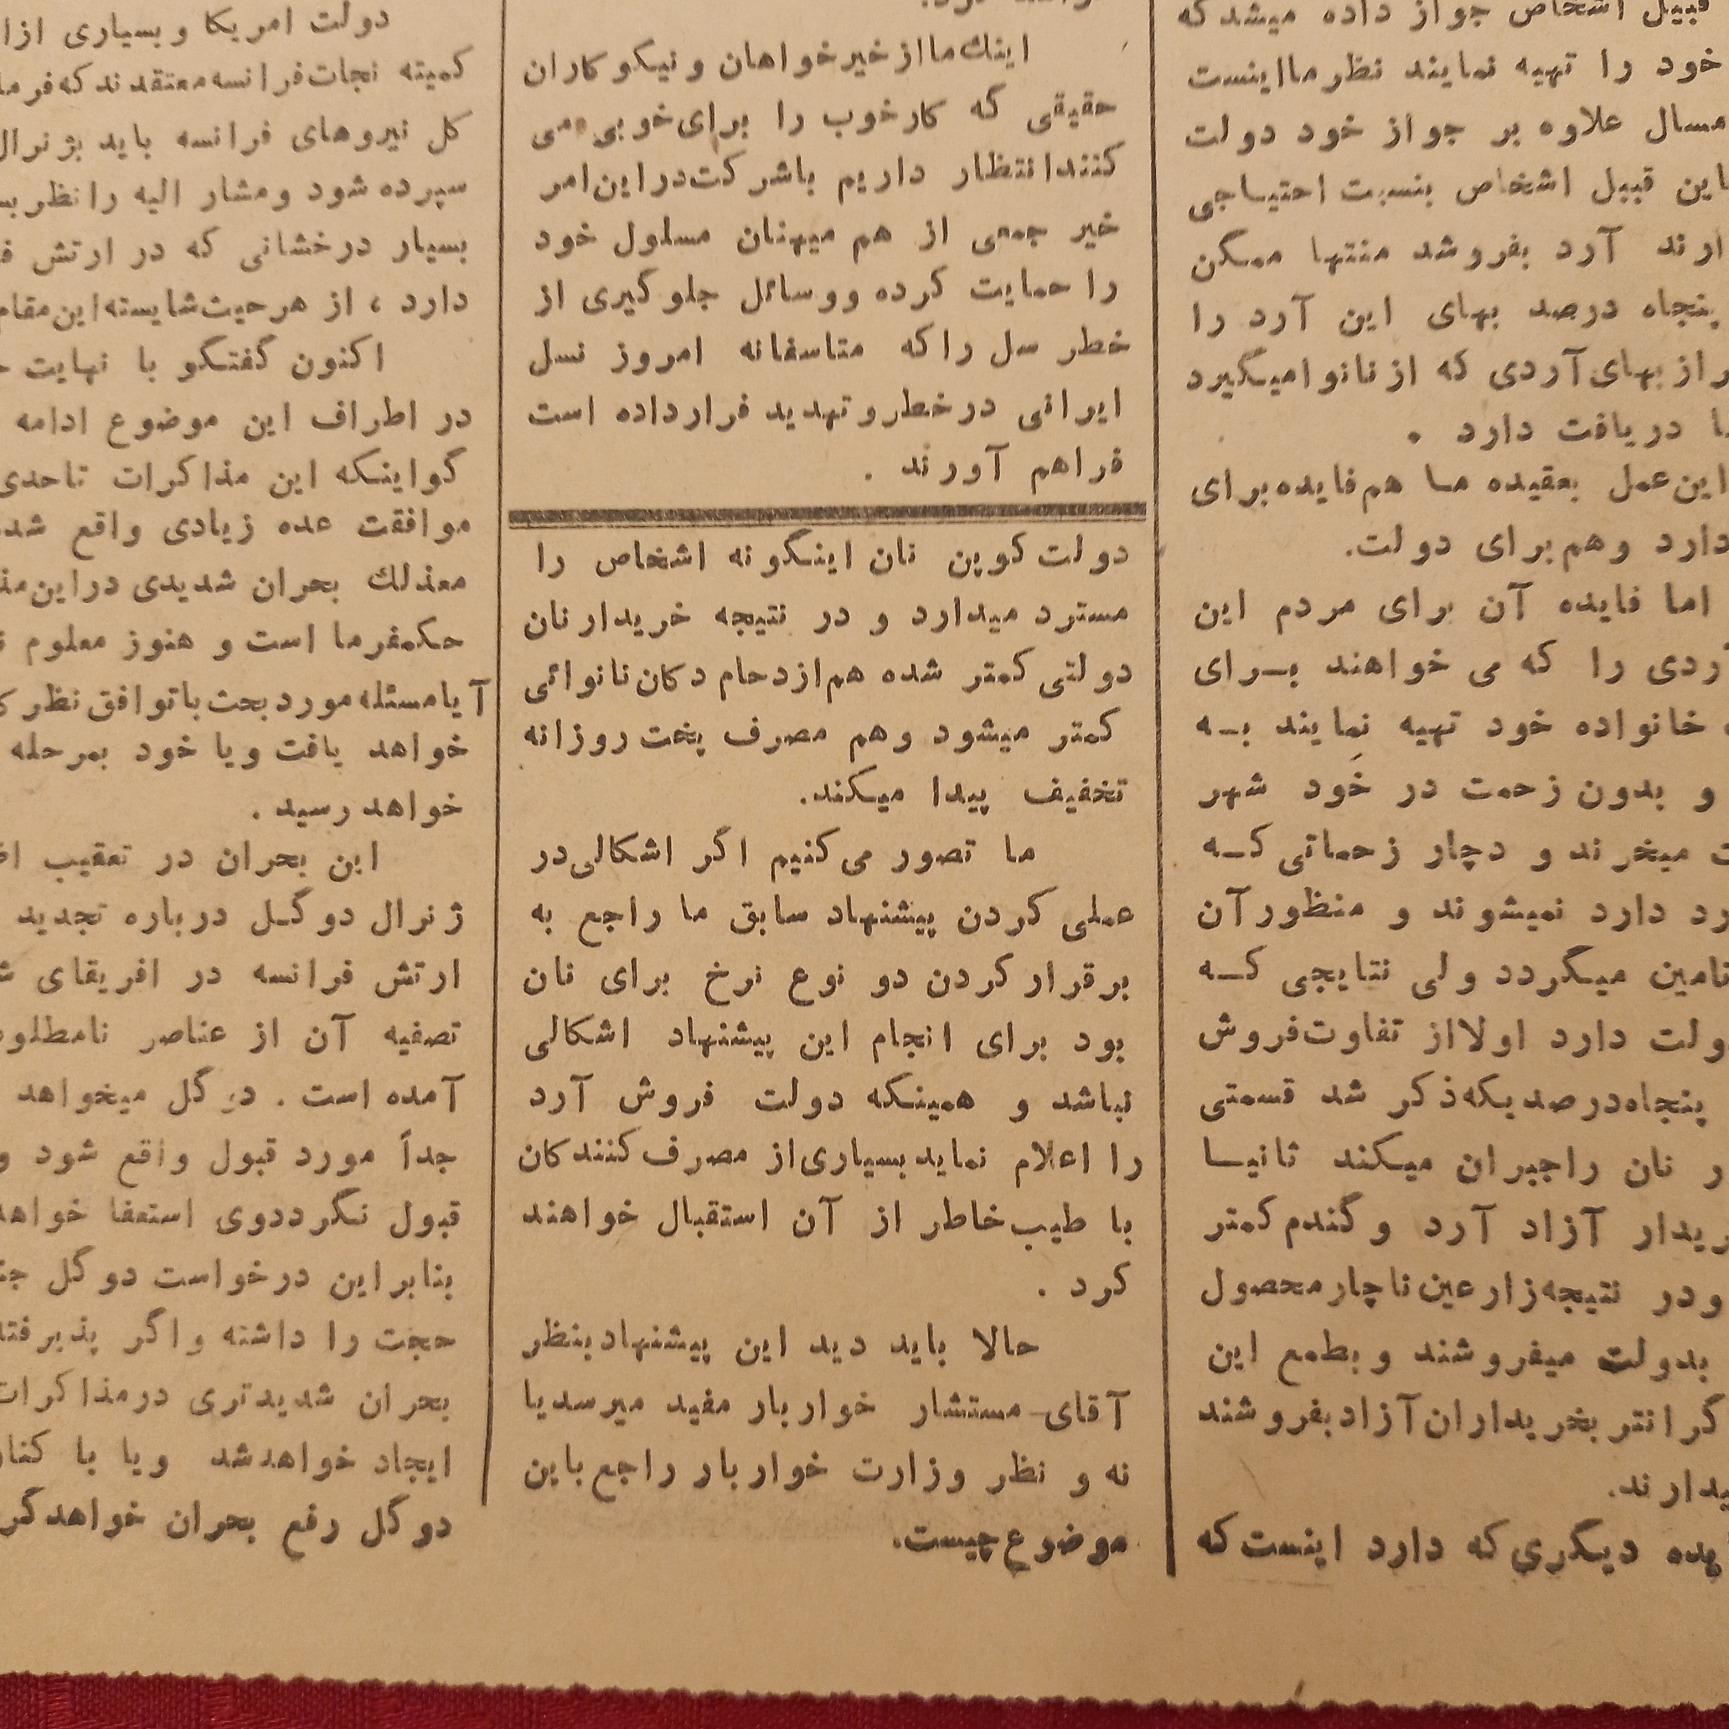 قبیل اشخاص جواز داده میشد که
خود را تهیه نمایند نظر ما اینست
علاوه بر جواز خود دولت
قبیل اشخاص بنسبت احتیـاجی
آرد بفروشد منتها ممکن
پنجاه درصد بهای این آرد را
از بهای آردی که از نانوا میگیرد
دریافت دارد .
این عمل بعقیده مـا هم فایده برای
دارد و هم برای دولت.
اما فایده آن برای مردم این
را که می خواهند بـرای
خانواده خود تهیه نمایند بـه
و بدون زحمت در خود شهر
میخرند و دچار زحماتی کـه
دارد نمیشوند و منظور آن
تامین میگردد ولی نتایجی کـه
دارد اولا از تفاوت فروش
پنجاه درصدیکه ذکر شد قسمتی
نان را جبران میکند ثانیـا
آزاد آرد و گندم کمتر
ودر نتیجه زارعین ناچار محصول
بدولت میفروشند و بطمع این
گرانتر بخریداران آزاد بفروشند
دیگری که دارد اینست که
اینك ما از خیرخواهان و نیکوکاران
حقیقی که کارخوب را برای خوبی می
کنند انتظار داریم باشرکت در این امر
خیر جمعی از هم میهنان مسلول خود
را حمایت کرده و وسائل جلوگیری از
خطر سل را که متاسفانه امروز نسل
ایرانی در خطر و تهدید قرار داده است
فراهم آورند .
دولت کوپن نان اینگونه اشخاص را
مسترد میدارد و در نتیجه خریدار نان
دولتی کمتر شده هم ازدحام دکان نانوائی
کمتر میشود و هم مصرف پخت روزانه
تخفیف پیدا میکند.
ما تصور می کنیم اگر اشکالی در
عملی کردن پیشنهاد سابق ما راجع به
برقرار کردن دو نوع نرخ برای نان
بود برای انجام این پیشنهاد اشکالی
نباشد و همینکه دولت فروش آرد
را اعلام نماید بسیاری از مصرف کنندگان
با طیب خاطر از آن استقبال خواهند
کرد .
حالا باید دید این پیشنهاد بنظر
آقای مستشار خواربار مفید میرسد یا
نه و نظر وزارت خواربار راجع باین
موضوع چیست.
دولت امریکا و بسیاری از
کمیته نجات فرانسه معتقدند که
کل نیروهای فرانسه باید بژنرال
سپرده شود و مشار الیه را نظر
بسیار درخشانی که در ارتش
دارد ، از هر حیث شایسته این مقام
اکنون گفتگو با نهایت
در اطراف این موضوع ادامه
گواینکه این مذاکرات تاحدی
موافقت عده زیادی واقع
معذلك بحران شدیدی در این
حکمفرما است و هنوز معلوم
آیا مسئله مورد بحث با توافق نظر
خواهد یافت و یا خود بمرحله
خواهد رسید .
این بحران در تعقیب
ژنرال دوگـل درباره تجدید
ارتش فرانسه در افریقای
تصفیه آن از عناصر
آمده است . دوگل میخواهد
جداً مورد قبول واقع شود
قبول نگردد وی استعفا
بنابراین درخواست دوگل
حجت را داشته و اگر
بحران شدیدتری در مذاکرات
ایجاد خواهد شد و یا با
دوگل رفع بحران